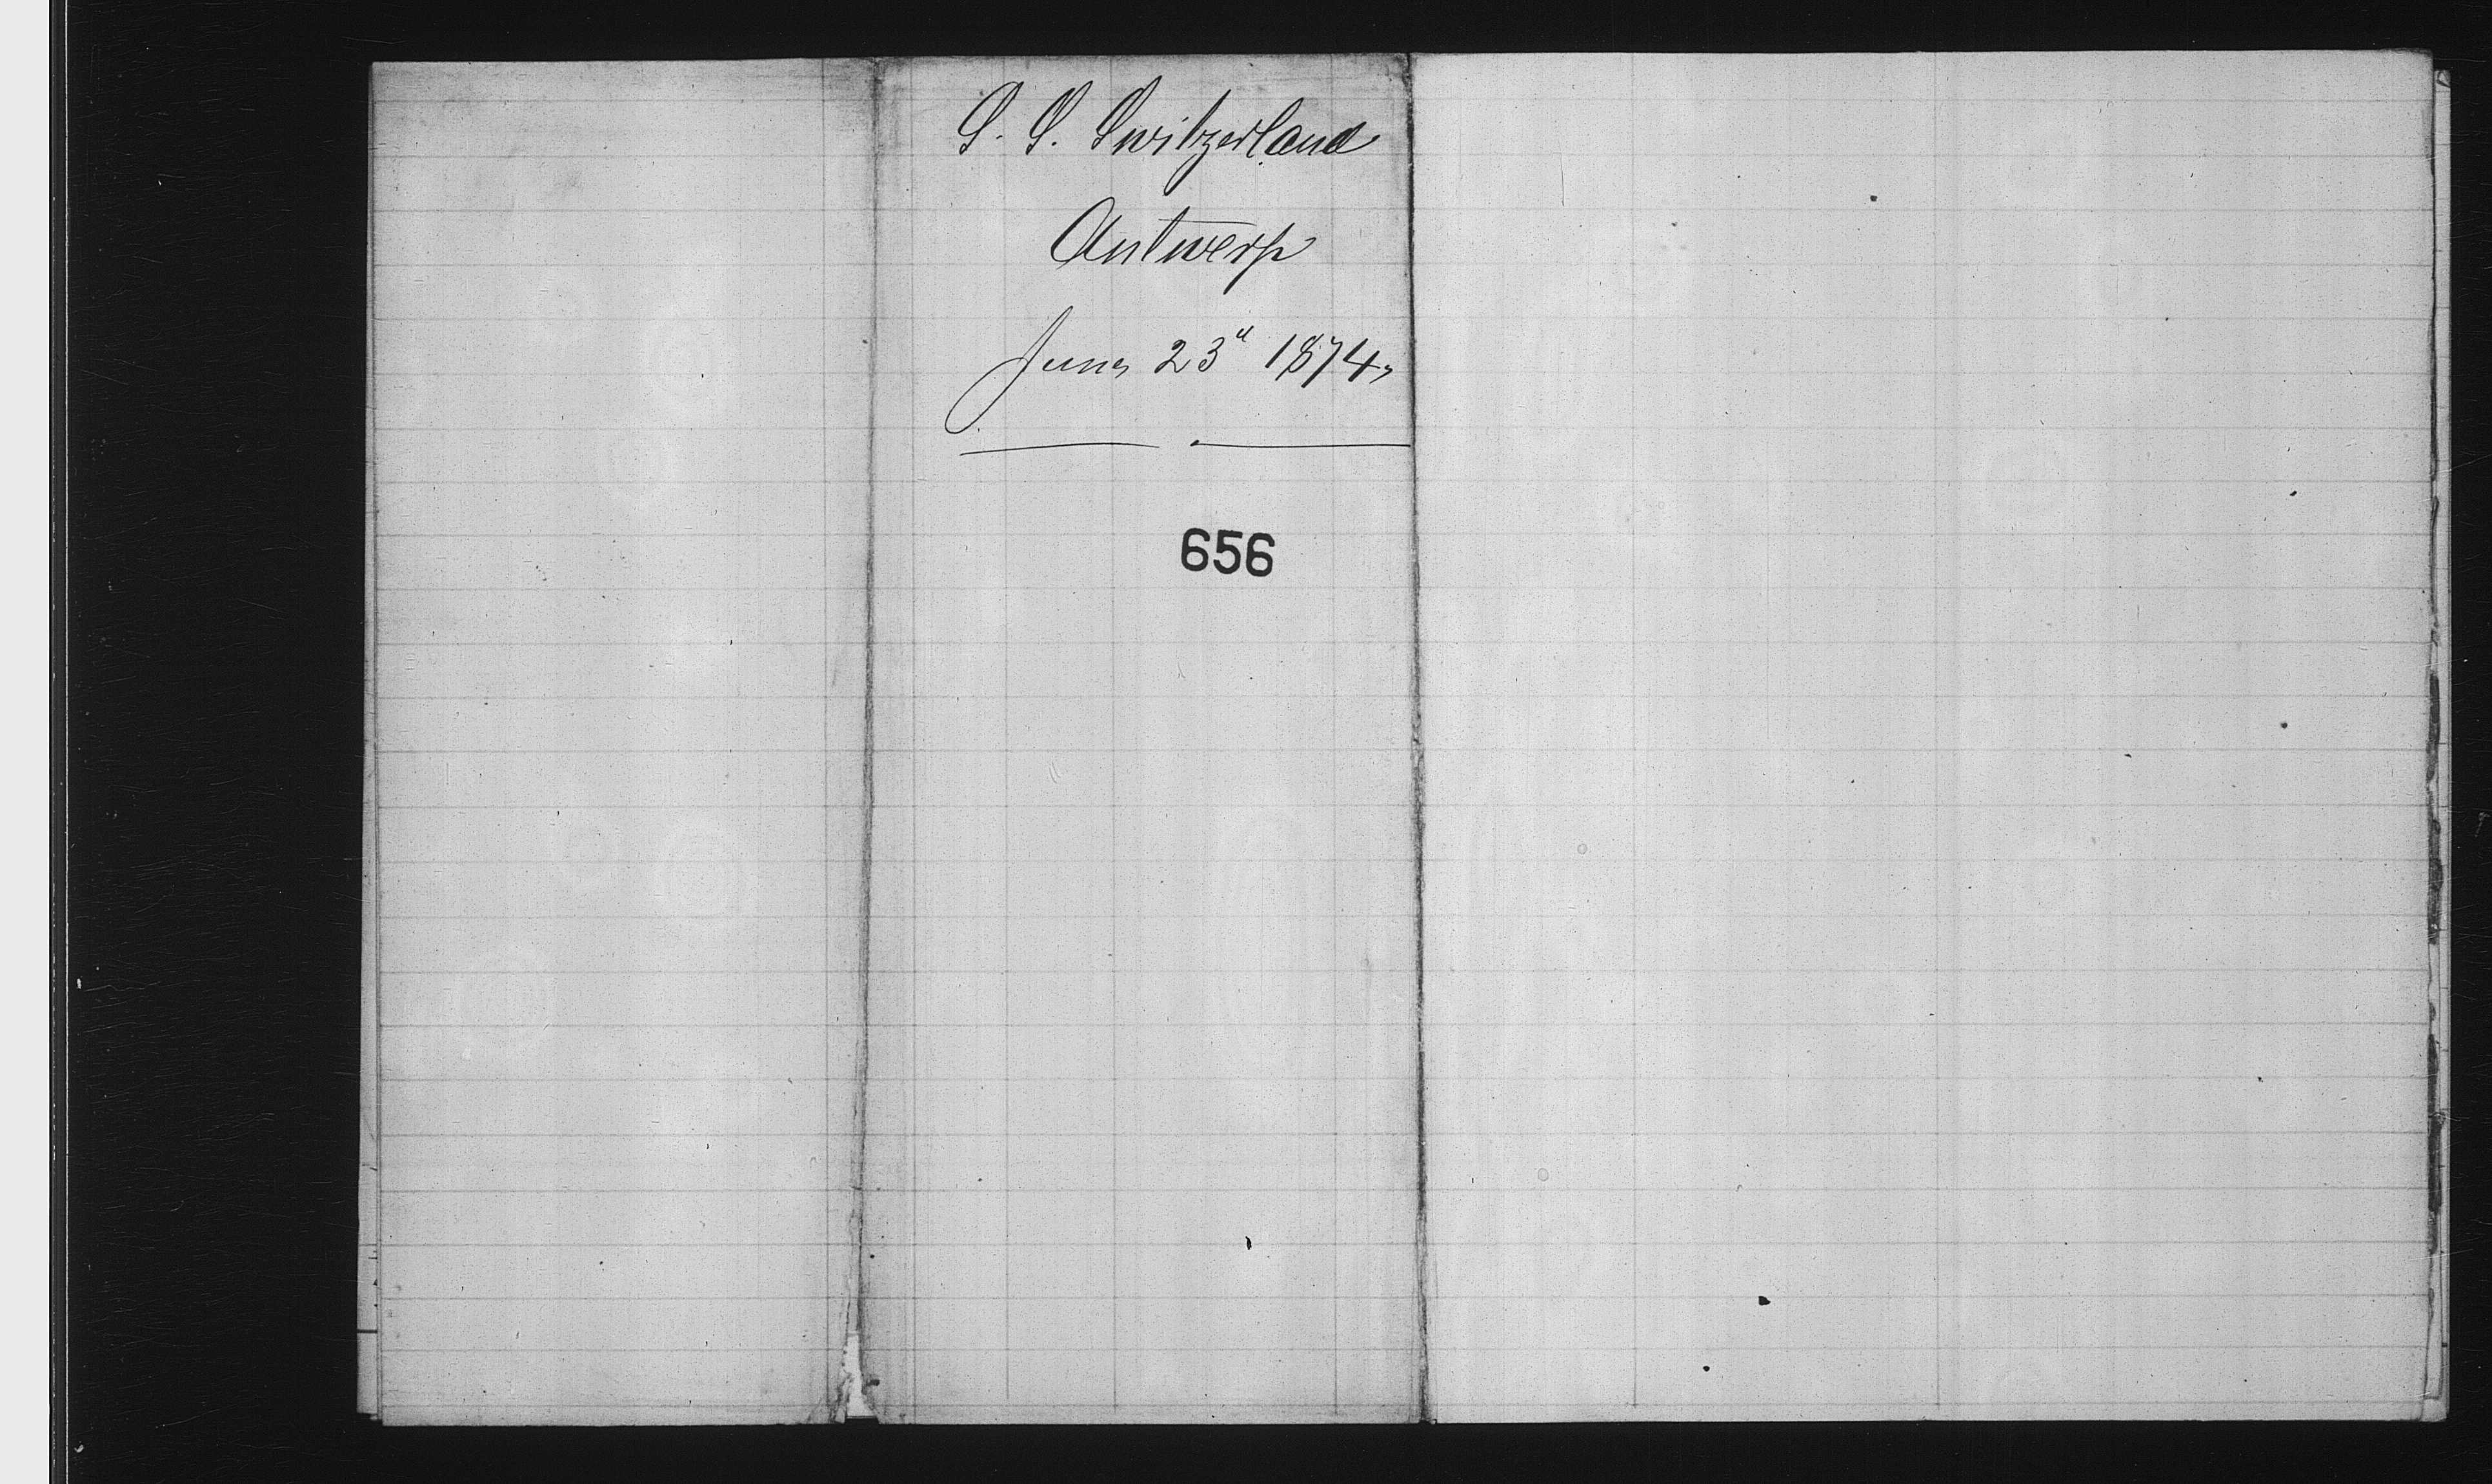 S. S. Switzerland
Antwerp
June 23d 1874
656